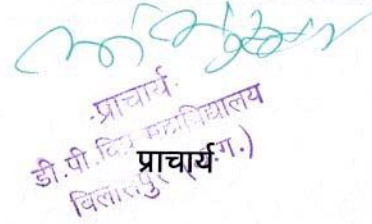 प्राचार्य
डी.पी. विप्र महाविद्यालय
बिलासपुर (छ.ग.)
प्राचार्य